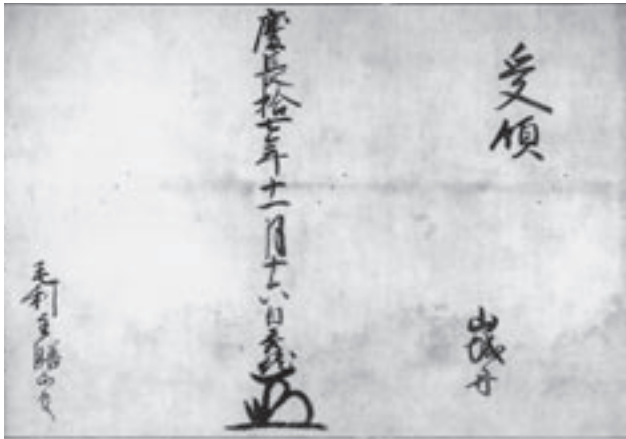 受領
山城守
慶長拾七年十一月十六日
毛利主膳